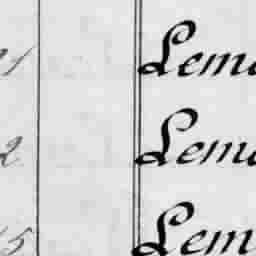 21 Lema
2 Lema
15 Lem